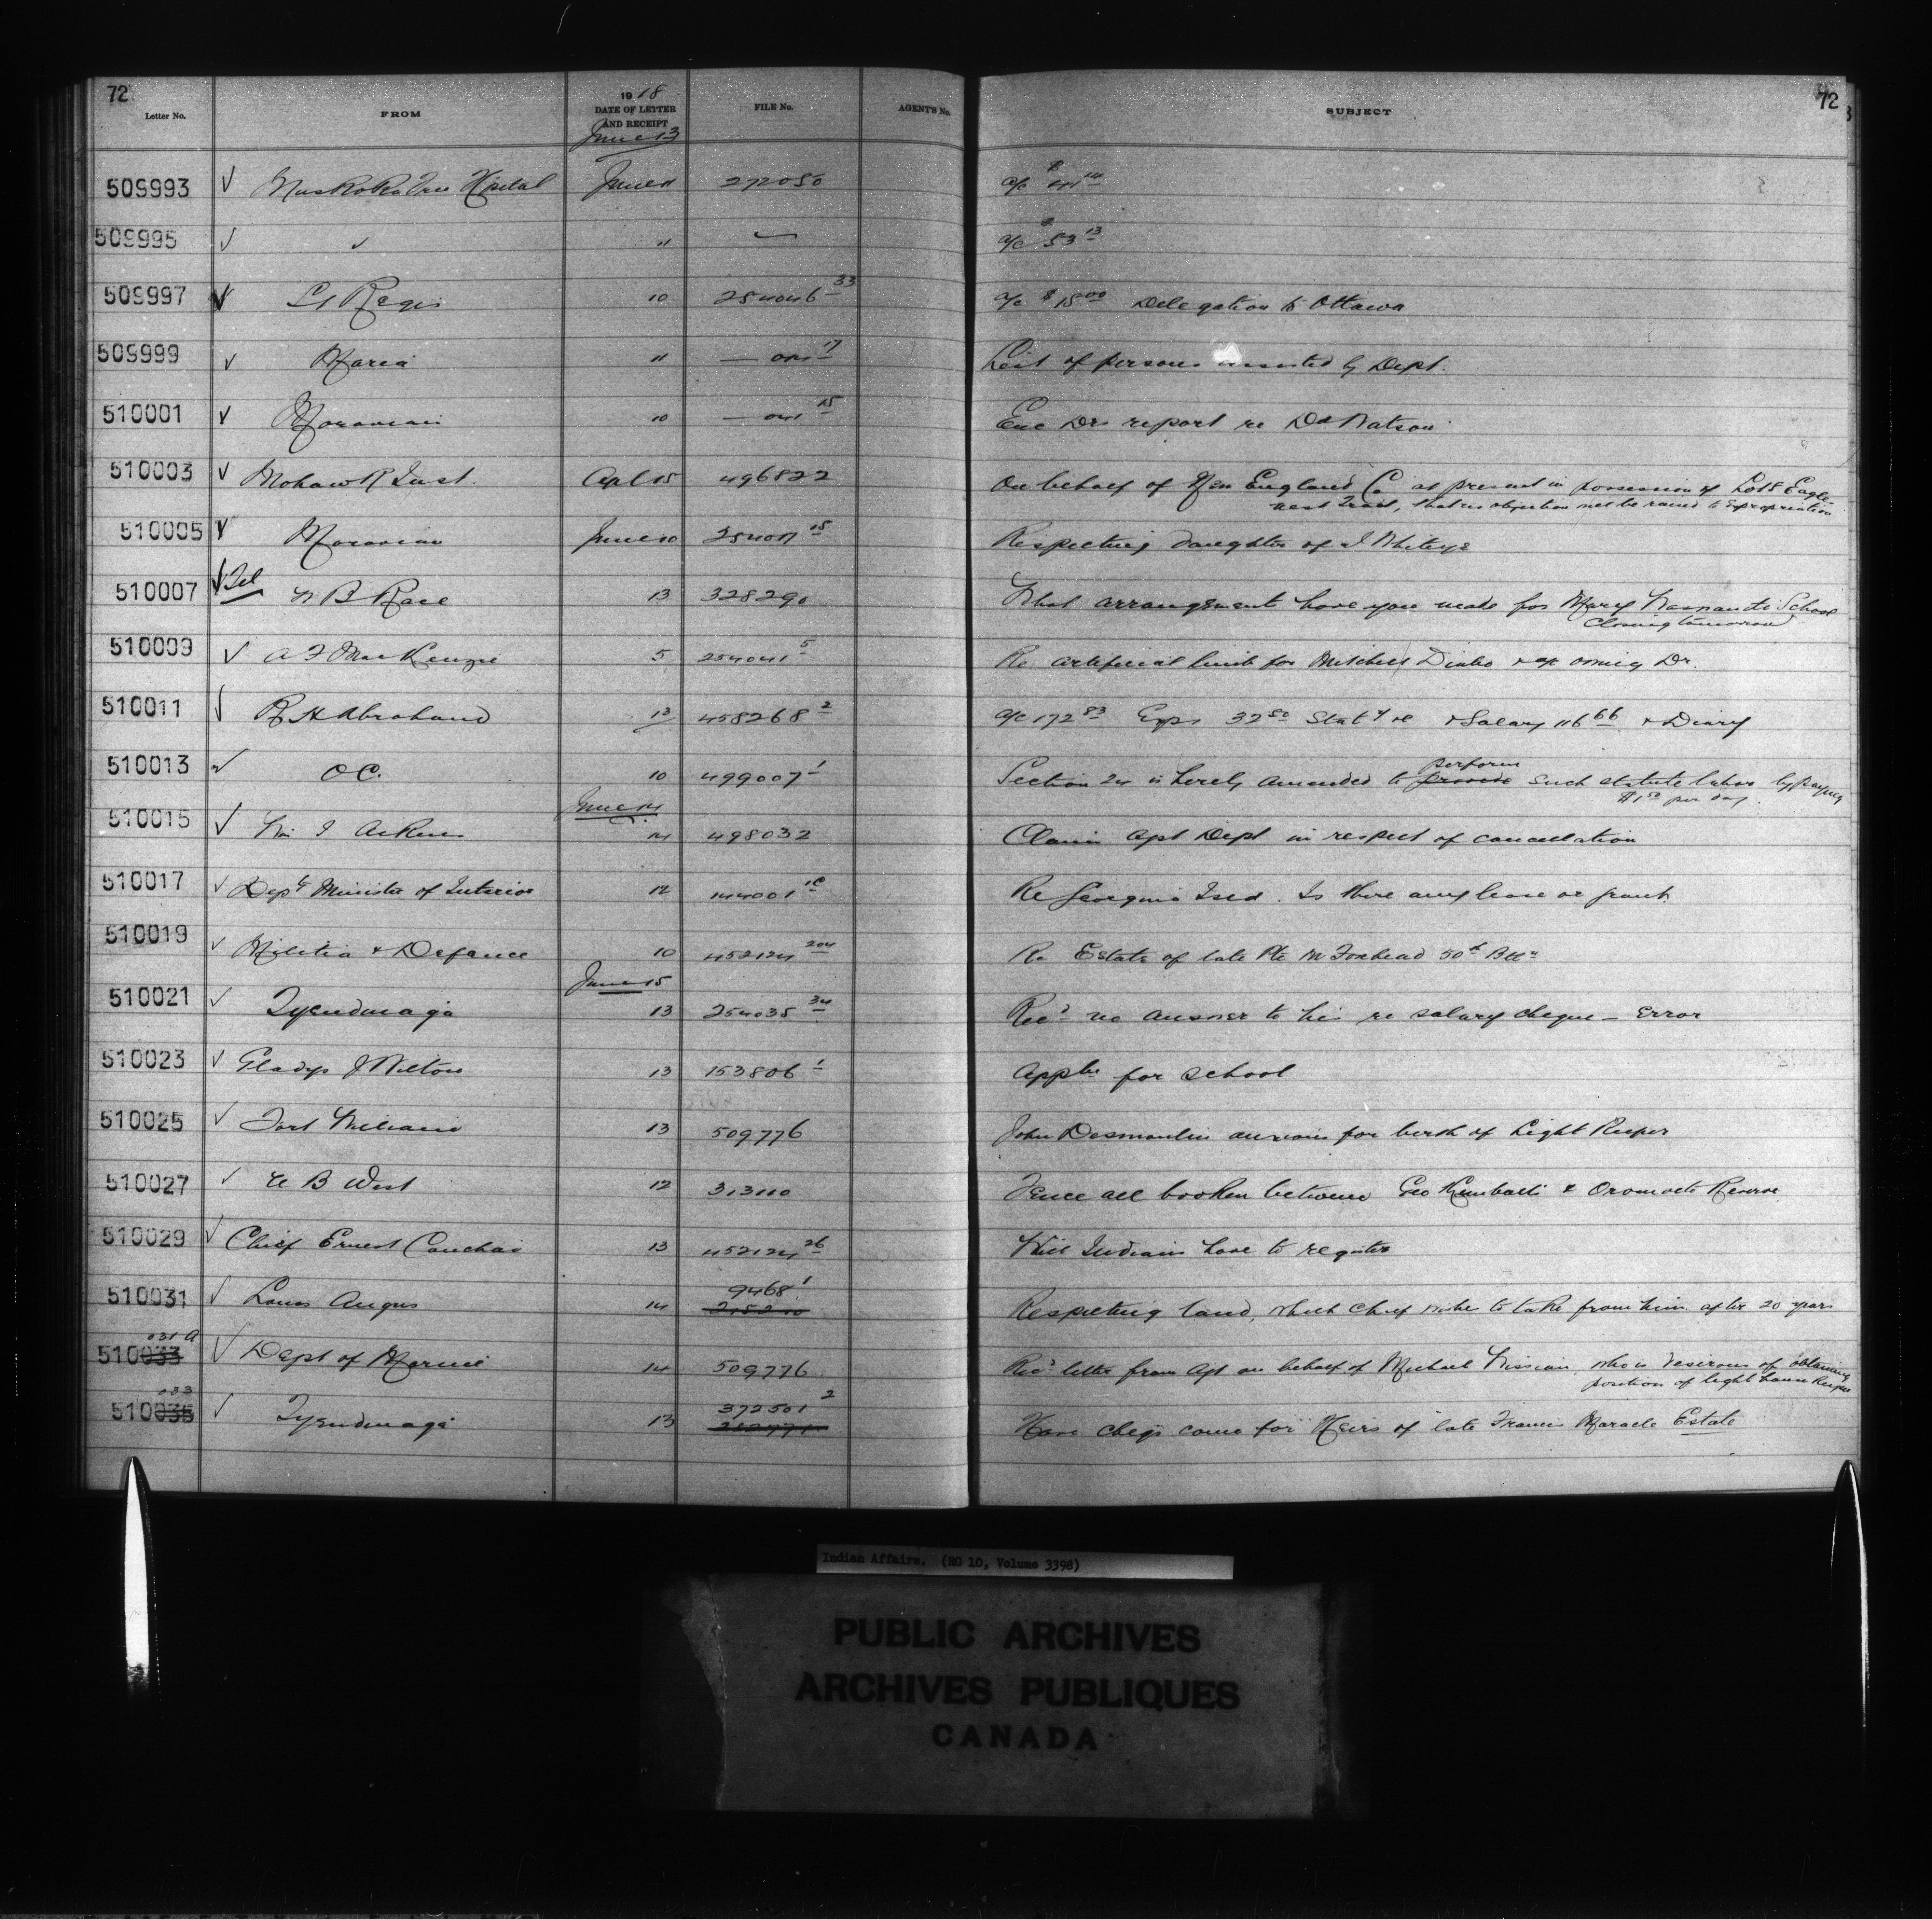 72
72
Letter No. FROM 1918 DATE OF LETTER AND RECEIPT FILE No. AGENT'S No. SUBJECT
June 13
509993 Muskoka Free Hpital June 11 272050 a/c $
509995 " a/c $ 53 13
509997 St Regis 10 254046 33 a/c $ 15 00 Delegation to Ottawa
509999 Maria " 17 List of persons assisted by Dept.
510001 Moravian 10 15 Enc Drs report re Dd Watson
510003 Mohawk Inst. Apl 15 496822 On behalf of New England Co at present in possession of Lot 5 Eagle-
nest Tract, that no objection will be raised to Expropriation
510005 Moravian June 10 15 Respecting daughter of J Whiteye
510007 Tel N B Race 13 328290 What arrangements have you made for Mary School
Closing tomorrow
510009 A F MacKenzie 5 254041 5 Re artificial limb for Mitchell Dr.
510011 R H Abraham 13 458268 2 a/c 172 83 Exps 32 50 & Salary 116 66 & Diary
510013 O C. 10 499007 1 Section 24 is hereby amended to provide perform such statute labor by paying
$1 50 per day
June 14
510015 Wm I 14 498032 Claim agst Dept in respect of cancellation
510017 Depty Minister of Interior 12 144001 Re Georgina Isld. Is there any lease or grant
510019 Militia & Defence 10 452124 204 Re Estate of late Pte 50th Bttn
June 15
510021 Tyendinaga 13 254035 34 Recd no answer to his re salary cheque — Error
510023 Gladys J Wilton 13 153806 1 Appln for School
510025 Fort William 13 509776 John Desmoulin anxious for berth of Light Keeper
510027 B West 12 313110 Fence all broken between Geo Kimball & Oromocto Reserve
510029 Chief Ernest Couchai 13 452124 26 Will Indians have to register
510031 Louis Angus 14 9468 1 Respecting land, which Chief wishes to take from him after 20 years
031 A
510033 Dept of Marine 14 509776 Recd letter from Agt on behalf of Michael who is desirous of obtaining
position of light house Keeper
033
510035 Tyendinaga 13 372501 2 Have cheqs come for Heirs of late Francis Maracle Estate
Indian Affairs. (RG 10, Volume 3398)
PUBLIC ARCHIVES
ARCHIVES PUBLIQUES
CANADA